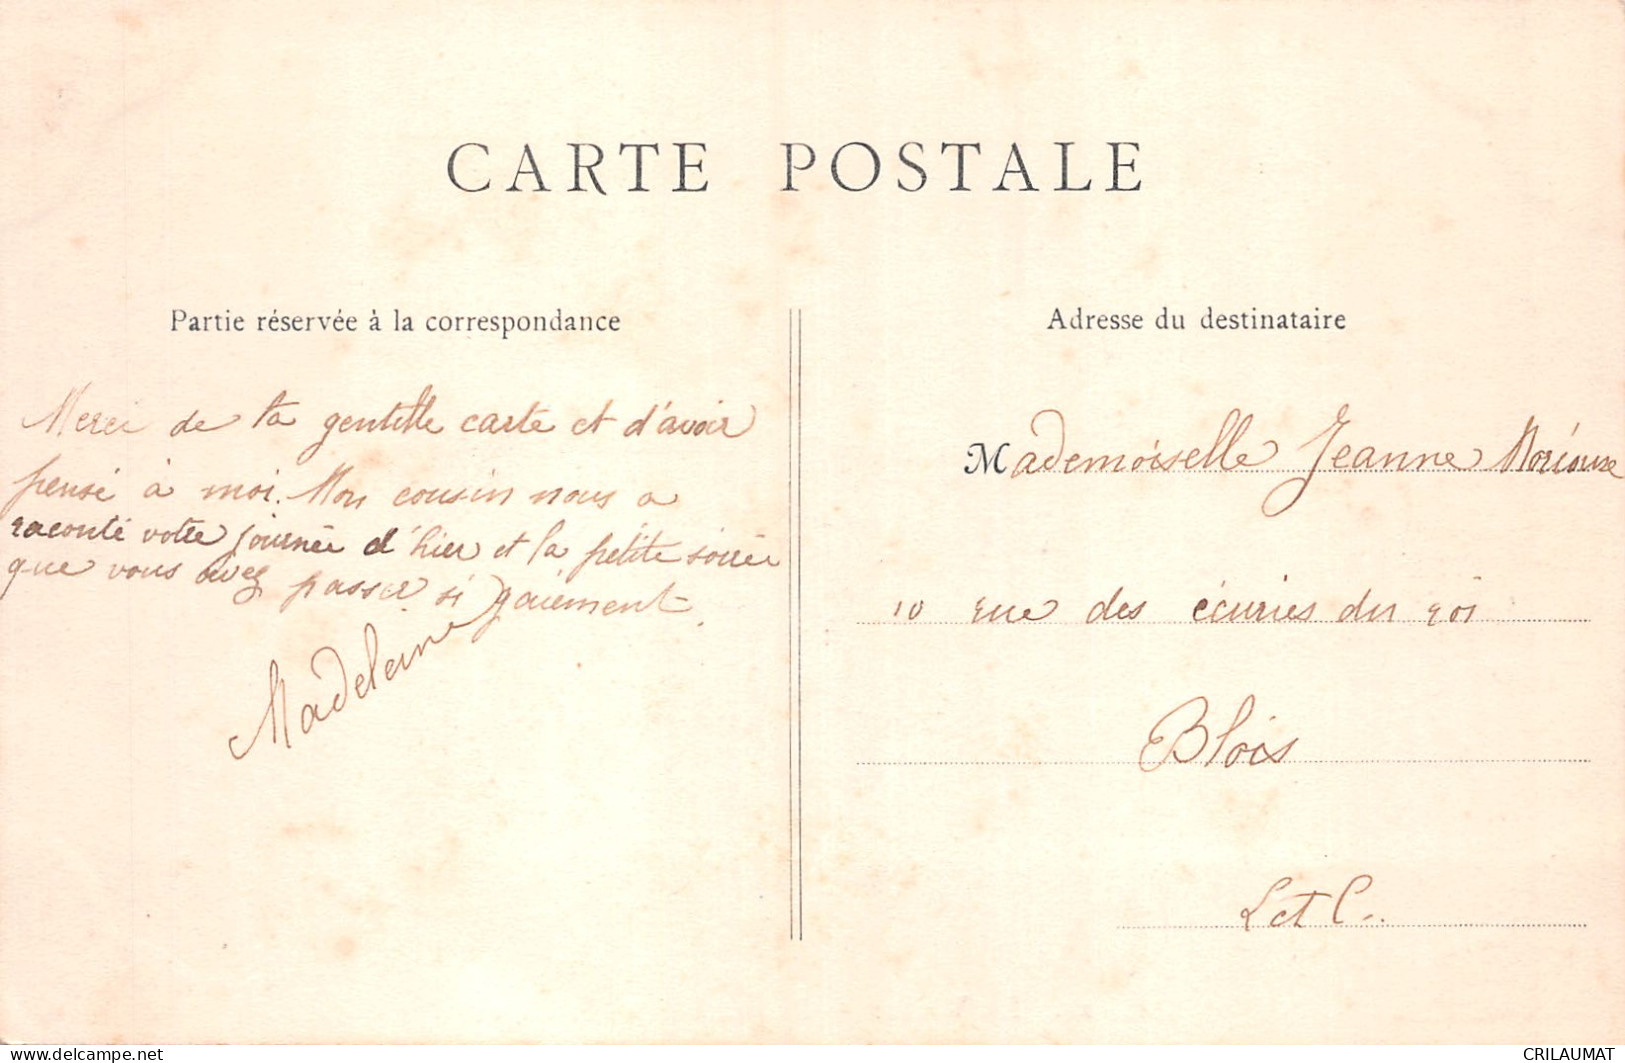 CARTE POSTALE
Partie réservée à la correspondance
Merci de ta gentille carte et d'avoir
pensé à moi. Mon cousin nous a
raconté votre journée d'hier et la petite soirée
que vous avez passer si gaiement.
Madeleine
Adresse du destinataire
Mademoiselle Jeanne
10 rue des écuries du roi
Blois
L et C.
www.delcampe.net
CRILAUMAT